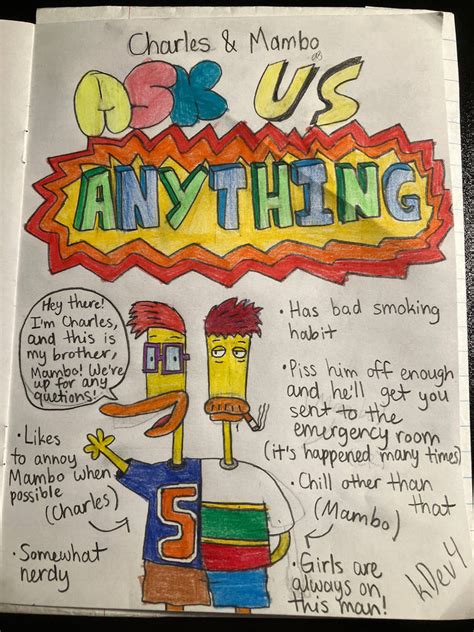 Charles & Mambo
ASK US
ANYTHING
Hey there!
I'm Charles,
and this is
my brother,
Mambo! We're
up for any
quetions!
• Likes
to annoy
Mambo when
possible
(Charles)
• Somewhat
nerdy
5
• Has bad smoking
habit
• Piss him off enough
and he'll get you
sent to the
emergency room
(it's happened many times)
• Chill other than
that
(Mambo)
• Girls are
always on
this man!